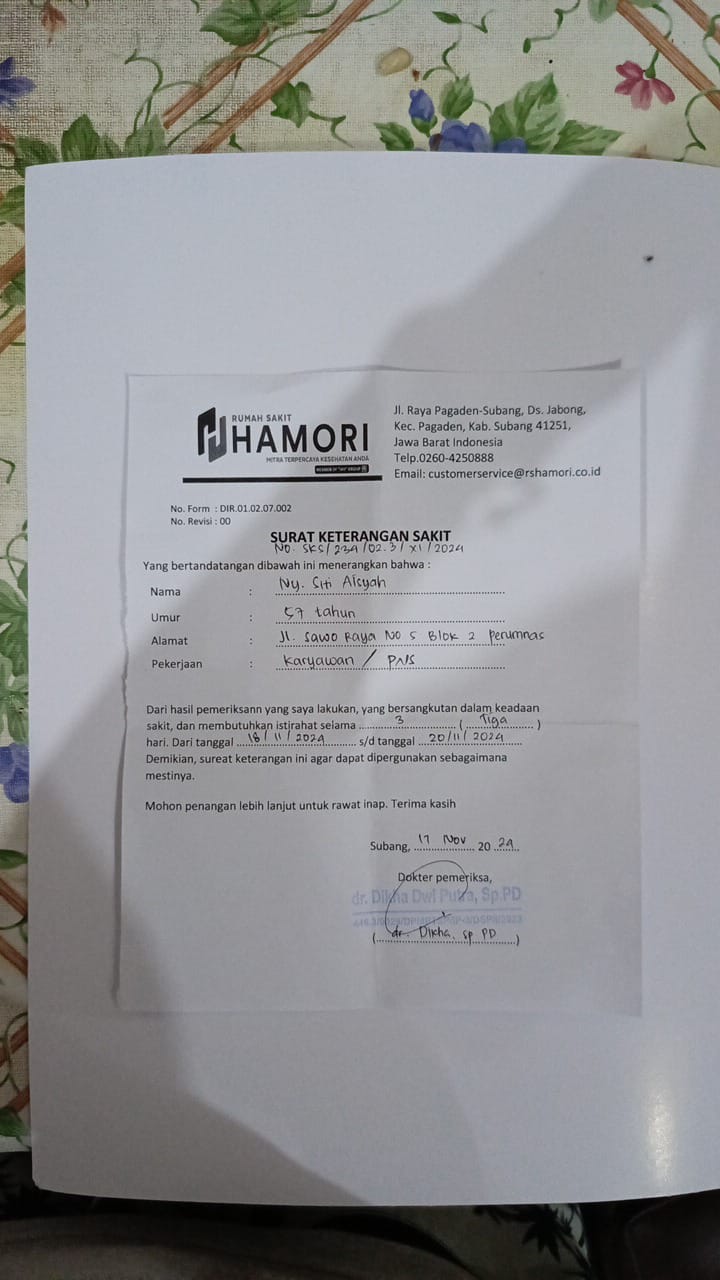 RUMAH SAKIT
HAMORI
MITRA TERPERCAYA KESEHATAN ANDA
Jl. Raya Pagaden-Subang, Ds. Jabong,
Kec. Pagaden, Kab. Subang 41251,
Jawa Barat Indonesia
Telp.0260-4250888
Email: customerservice@rshamori.co.id
No. Form : DIR.01.02.07.002
No. Revisi : 00
SURAT KETERANGAN SAKIT
No. SKS/234/02.3/XI/2024
Yang bertandatangan dibawah ini menerangkan bahwa :
Nama : Ny. Siti Aisyah
Umur : 57 tahun
Alamat : Jl. Sawo Raya No 5 Blok 2 Perumnas
Pekerjaan : Karyawan / PNS
Dari hasil pemeriksann yang saya lakukan, yang bersangkutan dalam keadaan
sakit, dan membutuhkan istirahat selama 3 ( Tiga )
hari. Dari tanggal 18/11/2024 s/d tanggal 20/11/2024
Demikian, sureat keterangan ini agar dapat dipergunakan sebagaimana
mestinya.
Mohon penangan lebih lanjut untuk rawat inap. Terima kasih
Subang, 17 Nov 20 24
Dokter pemeriksa,
dr. Dikha Dwi Putra, Sp.PD
( dr. Dikha. Sp PD )